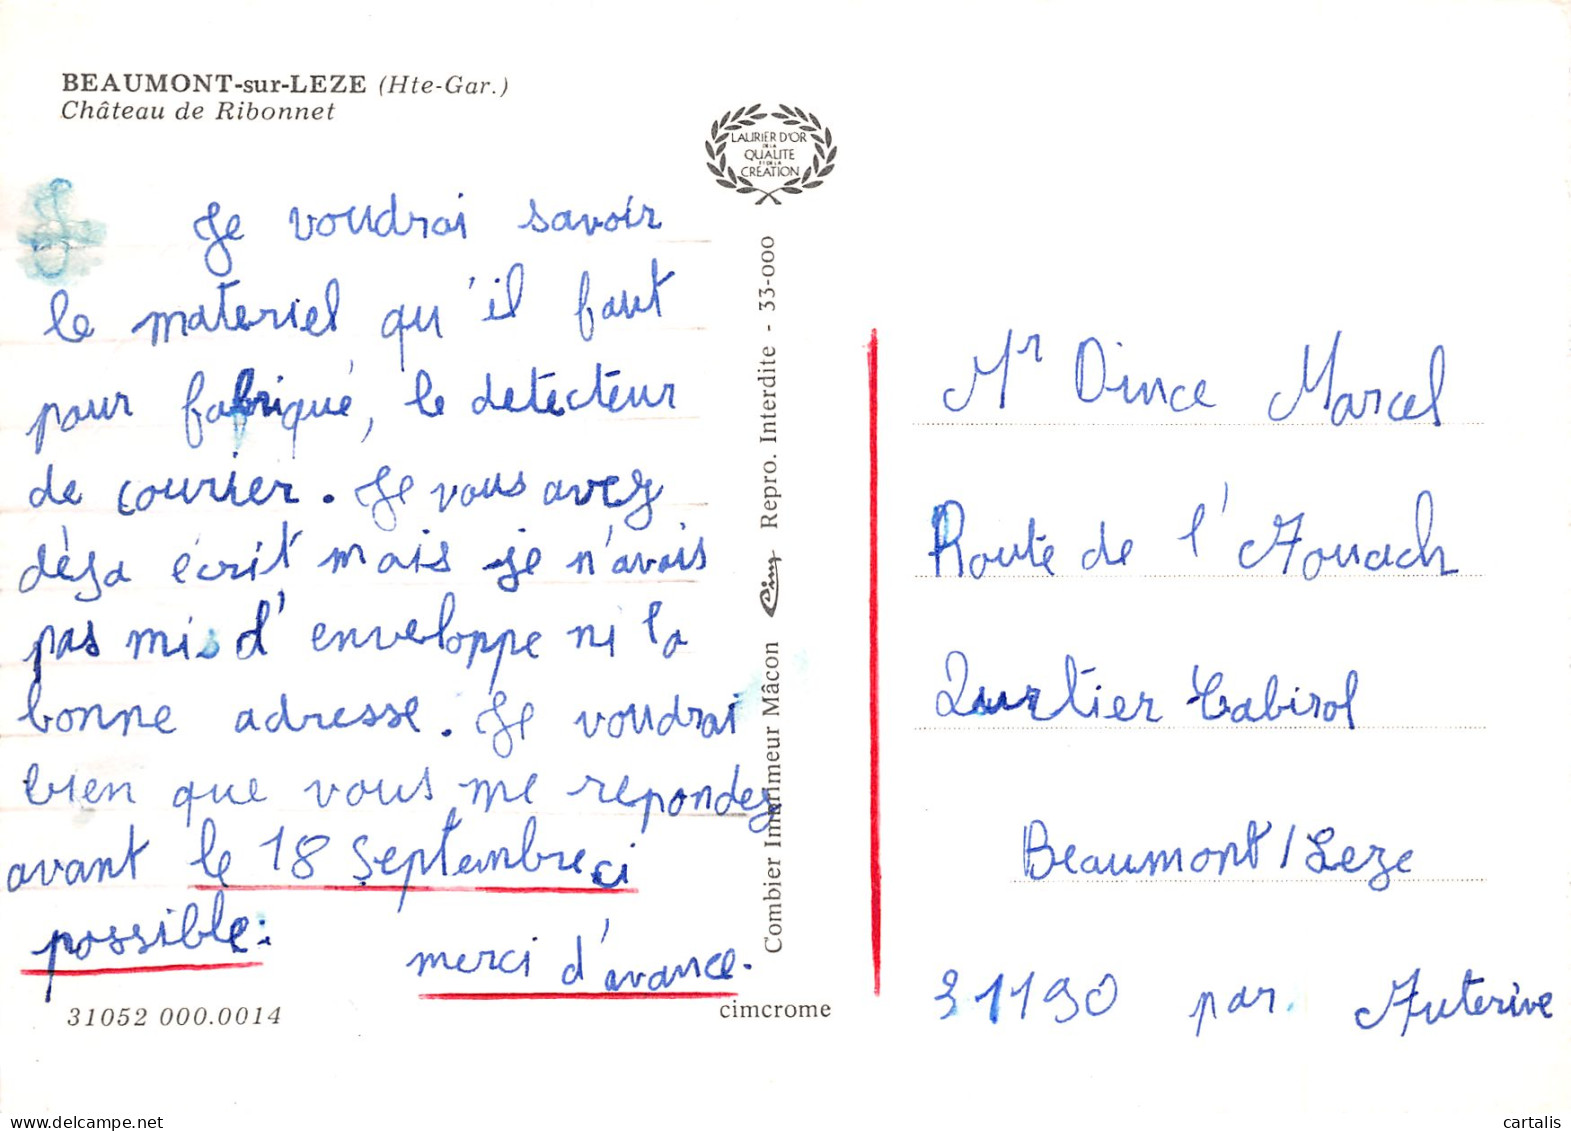 BEAUMONT-sur-LEZE (Hte-Gar.)
Château de Ribonnet
LAURIER D'OR
DE LA
QUALITE
ET DE LA
CRÉATION
Je voudrai savoir
le materiel qu'il faut
pour fabriqué, le detecteur
de courier. Je vous avez
dèja écrit mais je n'avais
pas mis d'enveloppe ni la
bonne adresse. Je voudrai
bien que vous me repondez
avant le 18 Septembre ci
possible.
merci d'avance.
31052 000.0014
cimcrome
Combier Imprimeur Mâcon Cim Repro. Interdite - 33-000
Mr Dince Marcel
Route de l'Aouach
Quartier Cabirol
Beaumont/Leze
31190 par Auterive
cartalis